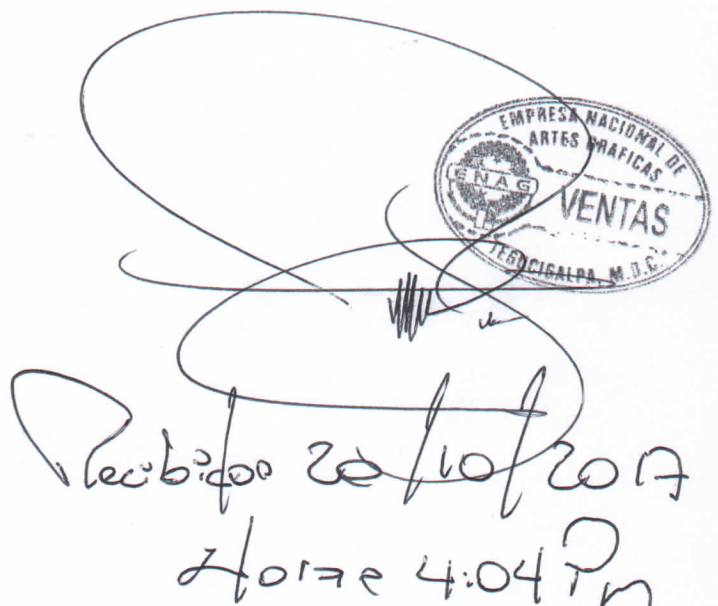 EMPRESA NACIONAL DE
ARTES GRAFICAS
ENAG
VENTAS
TEGUCIGALPA, M.D.C.
Recibido 20/10/2017
Hora 4:04 Pm